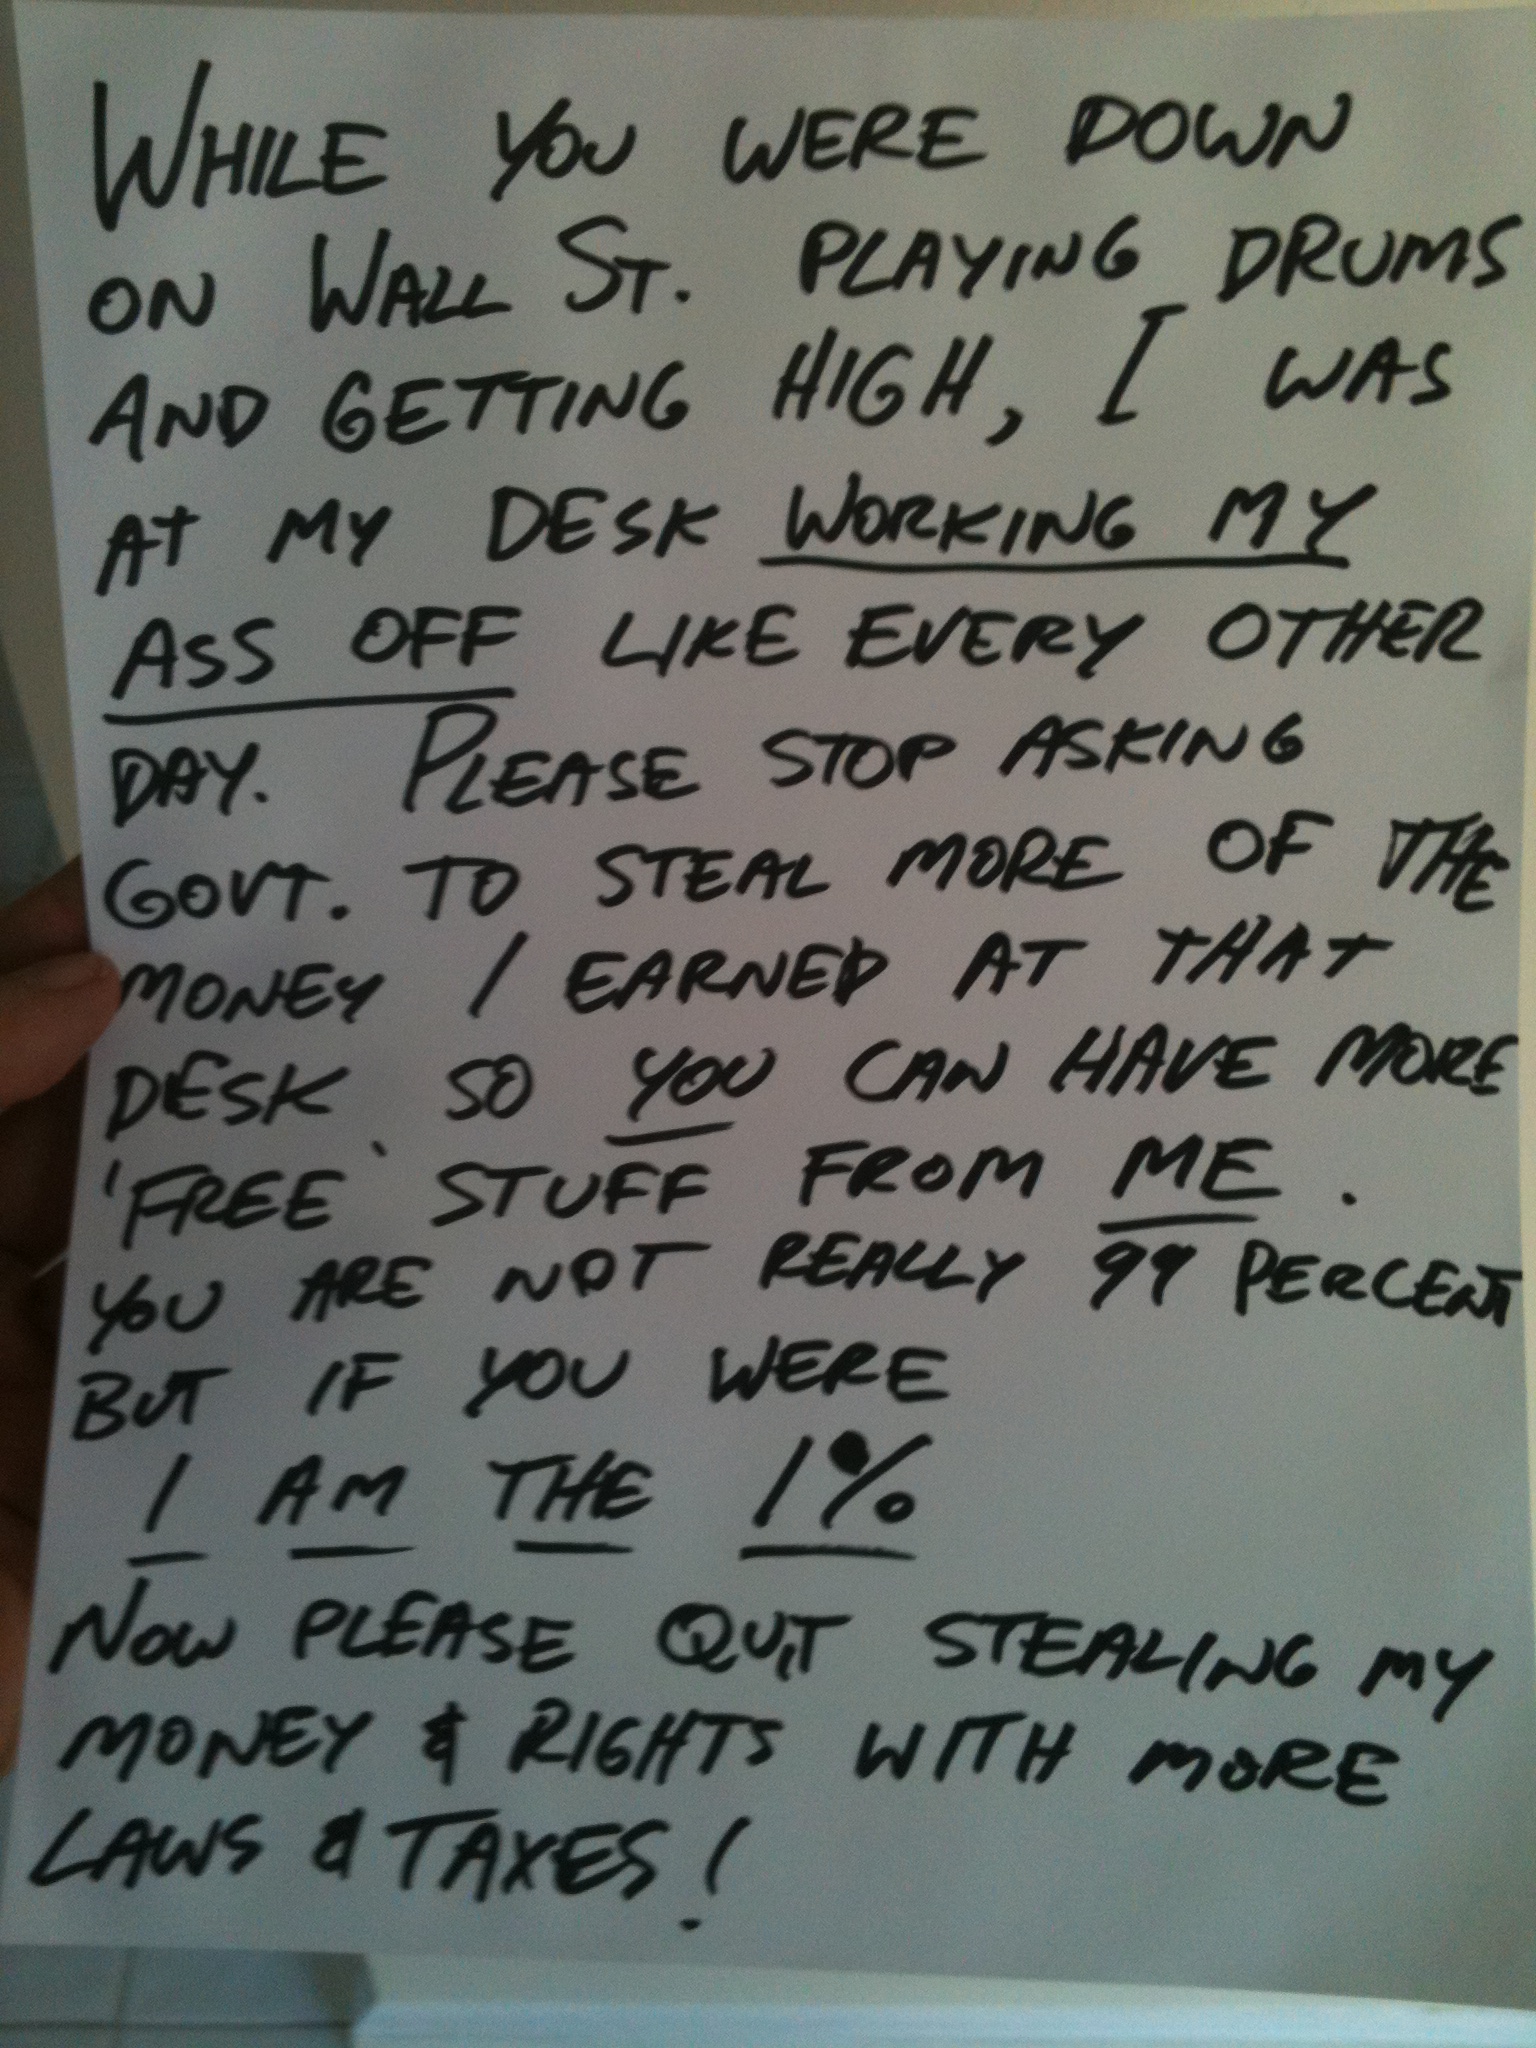 WHILE YOU WERE DOWN
ON WALL ST. PLAYING DRUMS
AND GETTING HIGH, I WAS
AT MY DESK WORKING MY
ASS OFF LIKE EVERY OTHER
DAY. PLEASE STOP ASKING
GOVT. TO STEAL MORE OF THE
MONEY I EARNED AT THAT
DESK SO YOU CAN HAVE MORE
'FREE' STUFF FROM ME.
YOU ARE NOT REALLY 99 PERCENT
BUT IF YOU WERE
I AM THE 1%
NOW PLEASE QUIT STEALING MY
MONEY & RIGHTS WITH MORE
LAWS & TAXES!